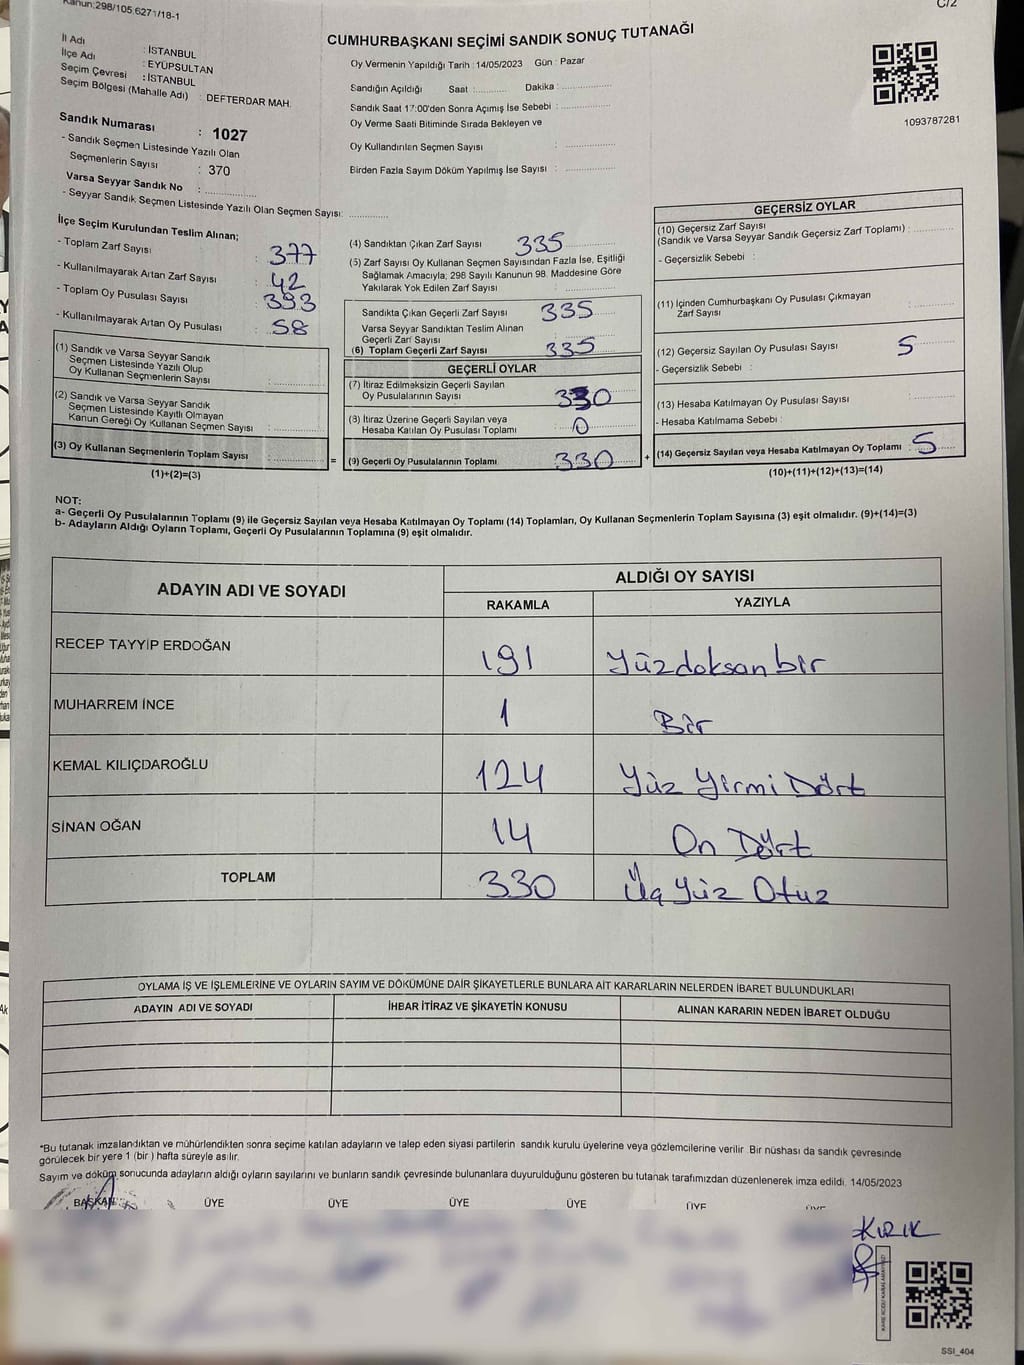 Kanun:298/105,6271/18-1
C/2
CUMHURBAŞKANI SEÇİMİ SANDIK SONUÇ TUTANAĞI
İl Adı : İSTANBUL
İlçe Adı : EYÜPSULTAN
Seçim Çevresi : İSTANBUL
Seçim Bölgesi (Mahalle Adı) : DEFTERDAR MAH.
Oy Vermenin Yapıldığı Tarih : 14/05/2023 Gün : Pazar
Sandığın Açıldığı Saat :.......... Dakika :................
Sandık Saat 17:00'den Sonra Açımış İse Sebebi :................
Oy Verme Saati Bitiminde Sırada Bekleyen ve
Oy Kullandırılan Seçmen Sayısı : ................
Birden Fazla Sayım Döküm Yapılmış İse Sayısı : ................
1093787281
Sandık Numarası : 1027
- Sandık Seçmen Listesinde Yazılı Olan
Seçmenlerin Sayısı : 370
Varsa Seyyar Sandık No : ................
- Seyyar Sandık Seçmen Listesinde Yazılı Olan Seçmen Sayısı: ............
İlçe Seçim Kurulundan Teslim Alınan;
- Toplam Zarf Sayısı : 377
- Kullanılmayarak Artan Zarf Sayısı : 42
- Toplam Oy Pusulası Sayısı : 393
- Kullanılmayarak Artan Oy Pusulası : 58
(1) Sandık ve Varsa Seyyar Sandık
Seçmen Listesinde Yazılı Olup
Oy Kullanan Seçmenlerin Sayısı : ................
(2) Sandık ve Varsa Seyyar Sandık
Seçmen Listesinde Kayıtlı Olmayan
Kanun Gereği Oy Kullanan Seçmen Sayısı : ................
(3) Oy Kullanan Seçmenlerin Toplam Sayısı : ................
(1)+(2)=(3)
=
(4) Sandıktan Çıkan Zarf Sayısı : 335
(5) Zarf Sayısı Oy Kullanan Seçmen Sayısından Fazla İse, Eşitliği
Sağlamak Amacıyla; 298 Sayılı Kanunun 98. Maddesine Göre
Yakılarak Yok Edilen Zarf Sayısı : ................
Sandıkta Çıkan Geçerli Zarf Sayısı : 335
Varsa Seyyar Sandıktan Teslim Alınan
Geçerli Zarf Sayısı :
(6) Toplam Geçerli Zarf Sayısı : 335
GEÇERLİ OYLAR
(7) İtiraz Edilmeksizin Geçerli Sayılan
Oy Pusulalarının Sayısı : 330
(8) İtiraz Üzerine Geçerli Sayılan veya
Hesaba Katılan Oy Pusulası Toplamı : 0
(9) Geçerli Oy Pusulalarının Toplamı : 330
+
GEÇERSİZ OYLAR
(10) Geçersiz Zarf Sayısı
(Sandık ve Varsa Seyyar Sandık Geçersiz Zarf Toplamı) : ............
- Geçersizlik Sebebi :
(11) İçinden Cumhurbaşkanı Oy Pusulası Çıkmayan
Zarf Sayısı : ............
(12) Geçersiz Sayılan Oy Pusulası Sayısı : 5
- Geçersizlik Sebebi :
(13) Hesaba Katılmayan Oy Pusulası Sayısı : ............
- Hesaba Katılmama Sebebi :
(14) Geçersiz Sayılan veya Hesaba Katılmayan Oy Toplamı : 5
(10)+(11)+(12)+(13)=(14)
NOT:
a- Geçerli Oy Pusulalarının Toplamı (9) ile Geçersiz Sayılan veya Hesaba Katılmayan Oy Toplamı (14) Toplamları, Oy Kullanan Seçmenlerin Toplam Sayısına (3) eşit olmalıdır. (9)+(14)=(3)
b- Adayların Aldığı Oyların Toplamı, Geçerli Oy Pusulalarının Toplamına (9) eşit olmalıdır.
ADAYIN ADI VE SOYADI ALDIĞI OY SAYISI
RAKAMLA YAZIYLA
RECEP TAYYİP ERDOĞAN 191 Yüzdoksan bir
MUHARREM İNCE 1 Bir
KEMAL KILIÇDAROĞLU 124 Yüz Yirmi Dört
SİNAN OĞAN 14 On Dört
TOPLAM 330 Üç Yüz Otuz
OYLAMA İŞ VE İŞLEMLERİNE VE OYLARIN SAYIM VE DÖKÜMÜNE DAİR ŞİKAYETLERLE BUNLARA AİT KARARLARIN NELERDEN İBARET BULUNDUKLARI
ADAYIN ADI VE SOYADI İHBAR İTİRAZ VE ŞİKAYETİN KONUSU ALINAN KARARIN NEDEN İBARET OLDUĞU
*Bu tutanak imzalandıktan ve mühürlendikten sonra seçime katılan adayların ve talep eden siyasi partilerin sandık kurulu üyelerine veya gözlemcilerine verilir. Bir nüshası da sandık çevresinde
görülecek bir yere 1 (bir ) hafta süreyle asılır.
Sayım ve döküm sonucunda adayların aldığı oyların sayılarını ve bunların sandık çevresinde bulunanlara duyurulduğunu gösteren bu tutanak tarafımızdan düzenlenerek imza edildi. 14/05/2023
BAŞKAN ÜYE ÜYE ÜYE ÜYE ÜYE ÜYE
KIRIK
SSI_404